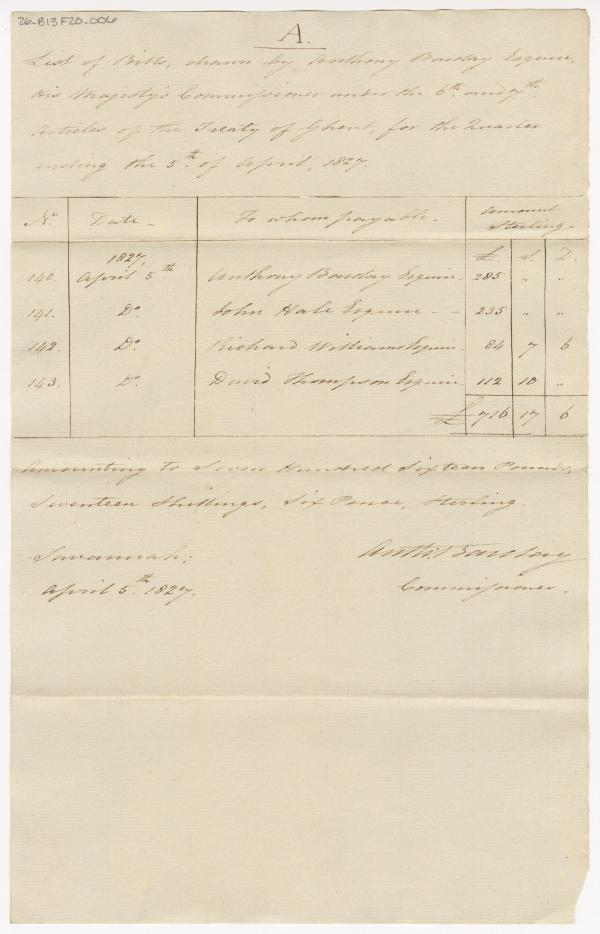 26-B13F20-006
A.
List of Bills, drawn by Anthony Barclay Esquire,
His Majesty's Commissioner under the 6th. and 7th.
Articles of the Treaty of Ghent, for the Quarter
ending the 5th. of April, 1827.
No. Date To whom payable. Amount Sterling.
1827, £. s. D.
140. April 5th Anthony Barclay Esquire 285 " "
141. Do. John Hale Esquire 235 " "
142. Do. Richard Williams Esquire 84 7 6
143. Do. David Thompson Esquire 112 10 "
£ 716 17 6
Amounting to Seven Hundred Sixteen Pounds,
Seventeen Shillings, Six Pence, Sterling.
Savannah; Anth: Barclay
April 5th. 1827. Commissioner.